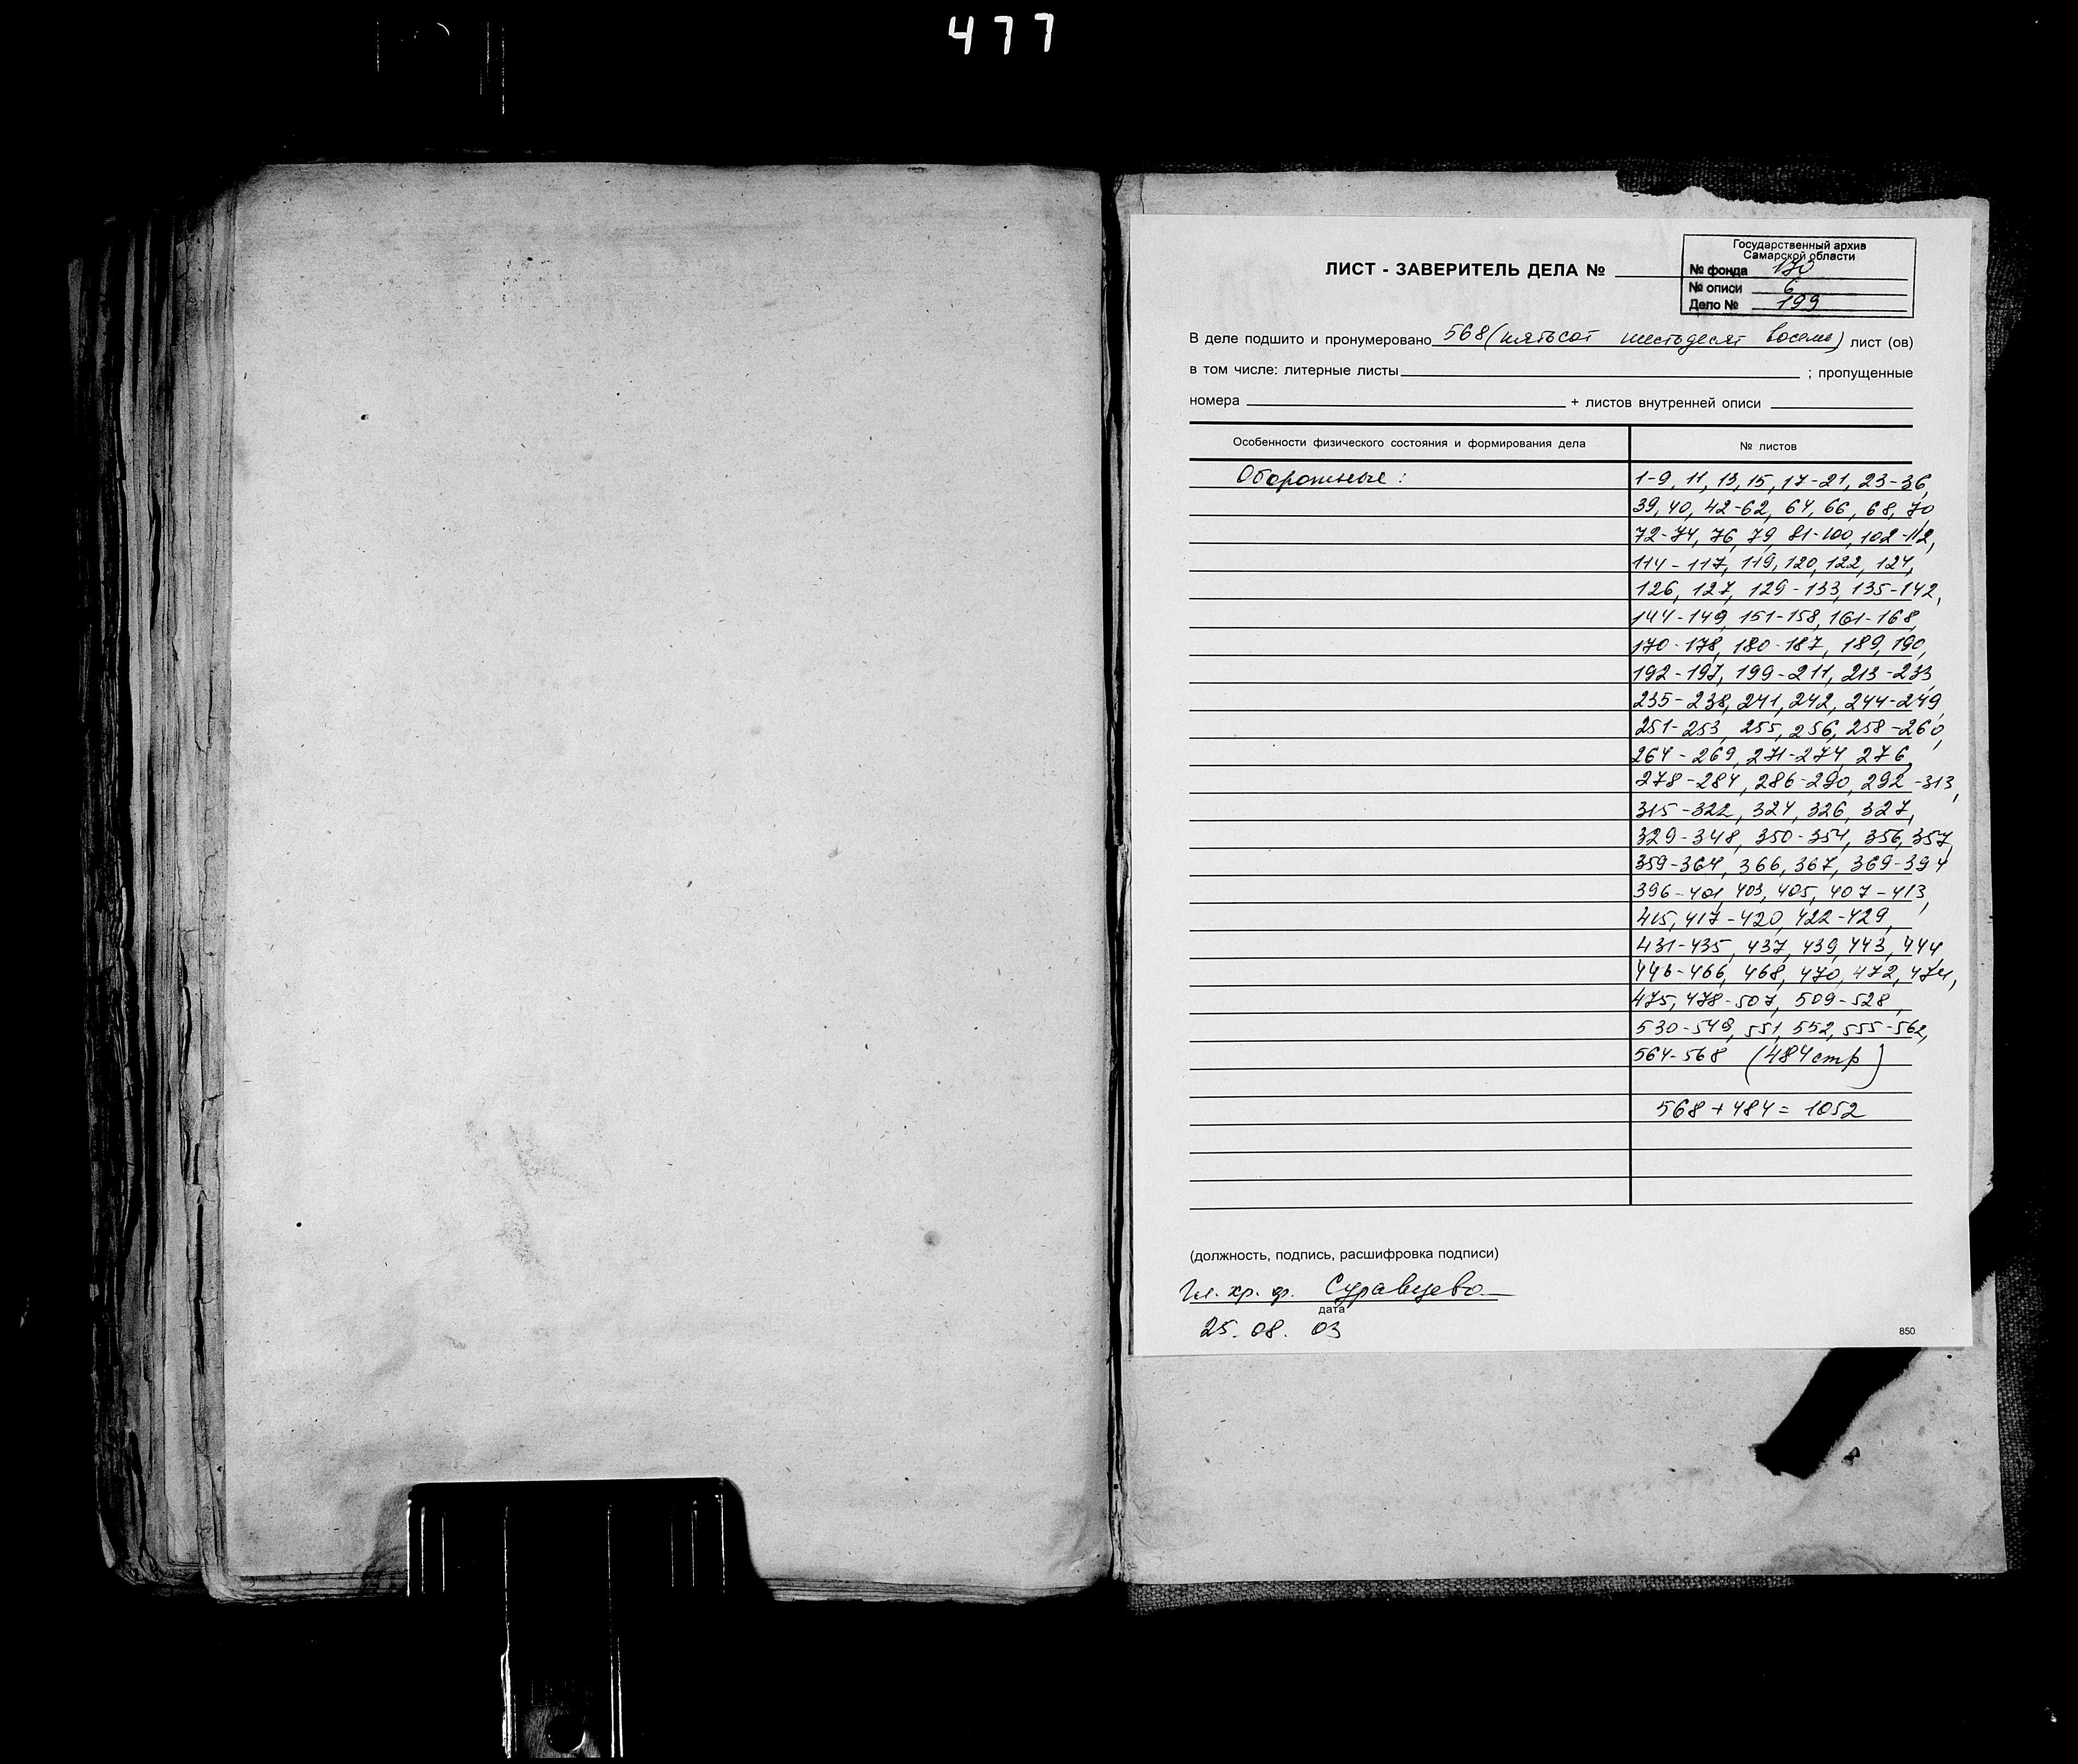 477
Государственный архив
Самарской области
ЛИСТ - ЗАВЕРИТЕЛЬ ДЕЛА №
№ фонда 170
№ описи 6
Дело № 199
В деле подшито и пронумеровано 568 (пятьсот шестьдесят восемь) лист (ов)
в том числе: литерные листы ; пропущенные
номера + листов внутренней описи
Особенности физического состояния и формирования дела № листов
Оборотные: 1-9, 11, 13, 15, 17-21, 23-36,
39, 40, 42-62, 64, 66, 68, 70
72-74, 76, 79, 81-100, 102-112,
114-117, 119, 120, 122, 124,
126, 127, 129-133, 135-142,
144-149, 151-158, 161-168,
170-178, 180-187, 189, 190,
192-197, 199-211, 213-233,
235-238, 241, 242, 244-249,
251-253, 255, 256, 258-260,
264-269, 271-274, 276,
278-284, 286-290, 292-313,
315-322, 324, 326, 327,
329-348, 350-354, 356, 357,
359-364, 366, 367, 369-394
396-401, 403, 405, 407-413,
415, 417-420, 422-429,
431-435, 437, 439, 443, 444
446-466, 468, 470, 472, 474,
475, 478-507, 509-528,
530-549, 551, 552, 555-562,
564-568 (484 стр)
568+484=1052
(должность, подпись, расшифровка подписи)
Гл. хр. ф. Суравцева
дата
25. 08. 03
850